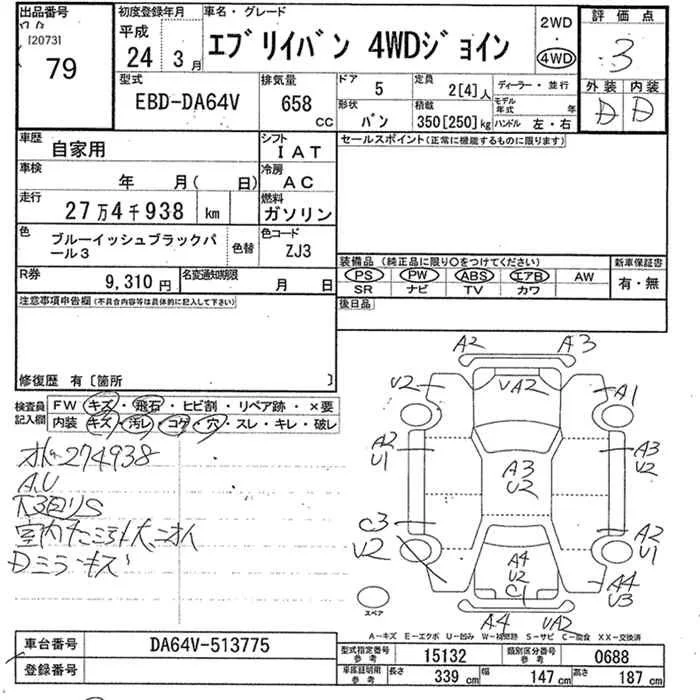 出品番号
[2073]
79
初度登録年月
平成
24 3月
車名・グレード
エブリイバン 4WDジョイン
2WD
・
4WD
評価点
3
外装 内装
D D
型式
EBD-DA64V
排気量
658 CC
ドア
5
定員
2[4]人
ディーラー・並行
形状
バン
積載
350[250]kg
モデル年式 年
ハンドル 左・右
車歴
自家用
シフト
IAT
セールスポイント(正常に機能するものに限ります)
車検
年 月( 日)
冷房
AC
走行
27万4千938 km
燃料
ガソリン
色
ブルーイッシュブラックパール3
色替
色コード
ZJ3
装備品 (純正品に限り○をつけてください)
PS・PW・ABS・エアB AW
SR ナビ TV カワ
新車保証書
有・無
R券
9,310円
名変通知期限
月 日
後日品
注意事項申告欄(不具合内容等は具体的に記入して下さい)
修復歴 有〔箇所 〕
検査員記入欄
FW キズ・飛石・ヒビ割・リペア跡・×要
内装 キズ・汚レ・コゲ・穴・スレ・キレ・破レ
274938
A.U
下回りS
Dミラーキズ
A2 A3
V2 VA2 A1
A2 U1 A3 U2 A3 V2
C3 V2 A4 U2 C1 A2 U1
A4 U3
A4 VA2
スペア
A-キズ E-エクボ U-凹み W-補修跡 S-サビ C-腐食 XX-交換済
車台番号
DA64V-513775
登録番号
型式指定番号 参考
15132
類別区分番号 参考
0688
車庫証明 参考
長さ 339 cm 幅 147 cm 高さ 187 cm